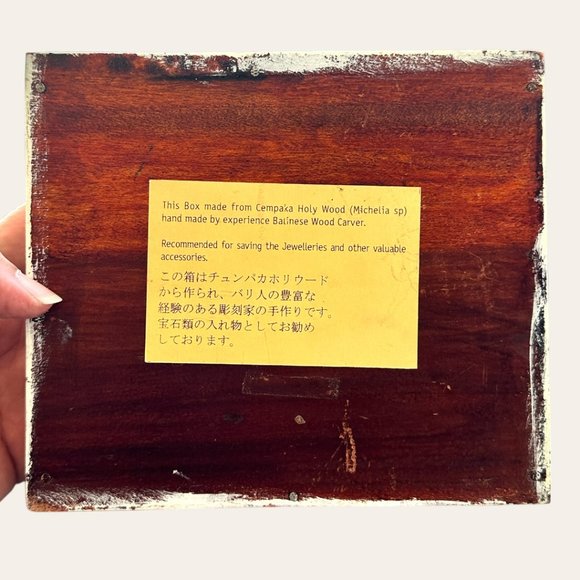 This Box made from Cempaka Holy Wood (Michelia sp)
hand made by experience Balinese Wood Carver.
Recommended for saving the Jewelleries and other valuable
accessories.
この箱はチュンパカホリウード
から作られ、バリ人の豊富な
経験のある彫刻家の手作りです。
宝石類の入れ物としてお勧め
しております。